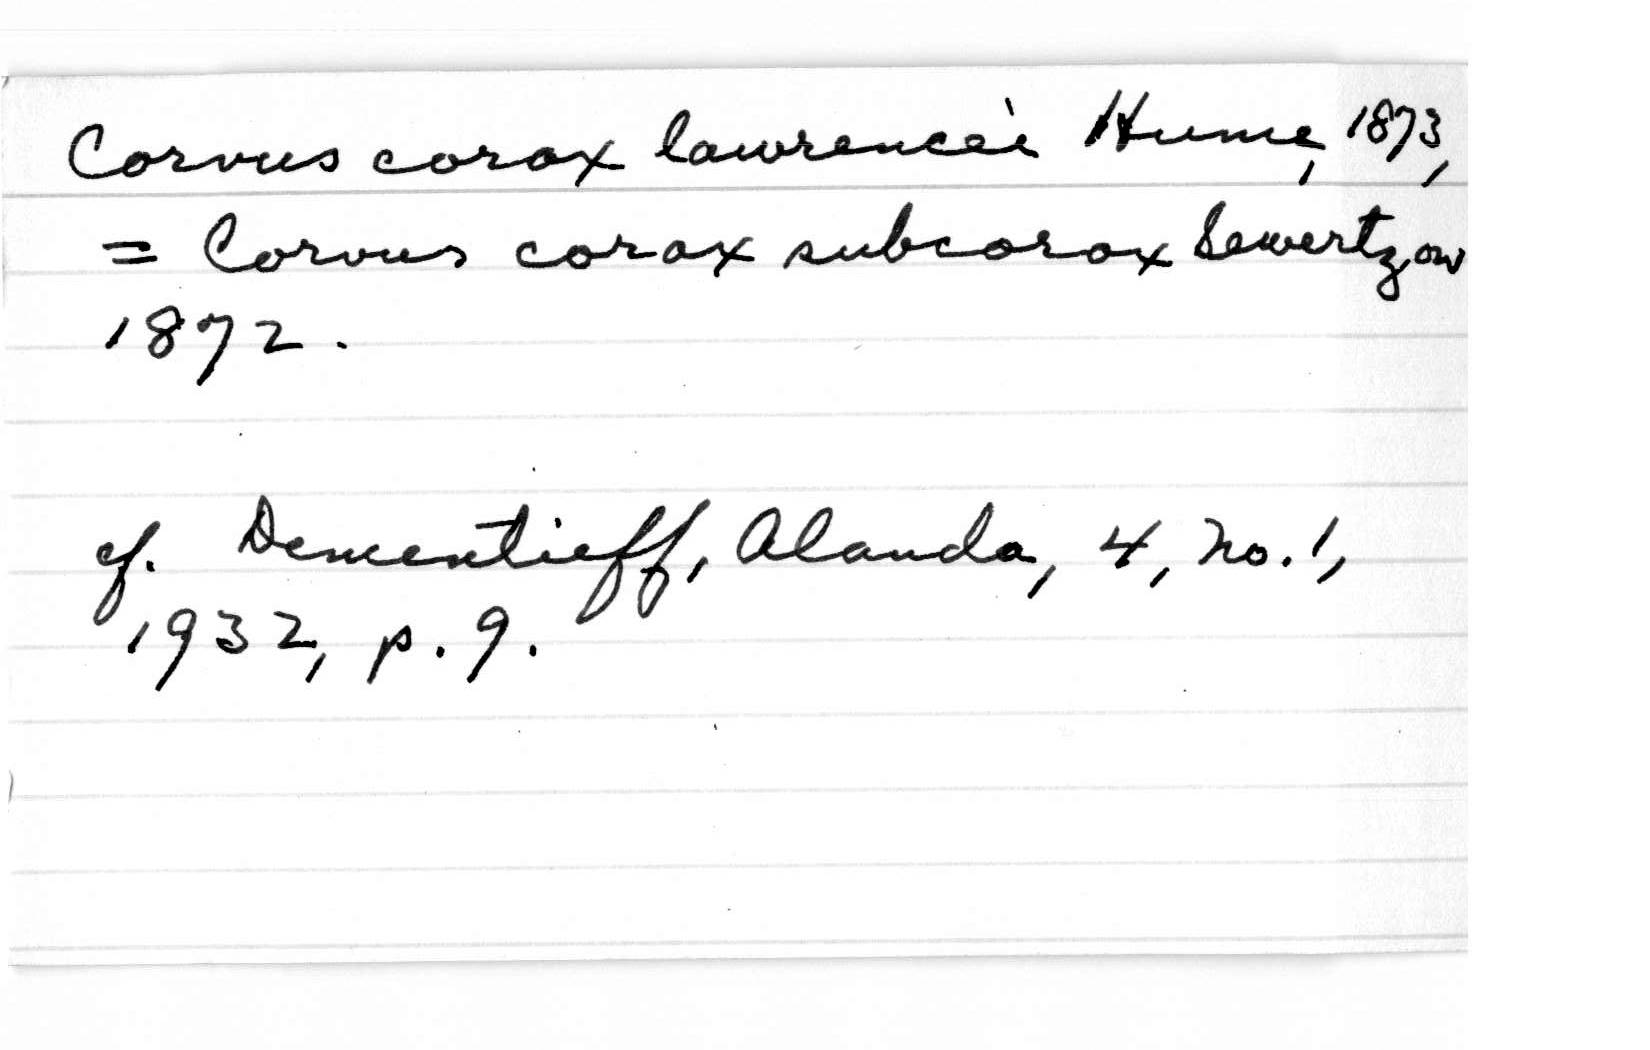 Corvus corax lawrencei Hume, 1873,
= Corvus corax subcorax Sewertzow
1872.
cf. Dementieff, Alauda, 4, no. 1,
1932, p. 9.